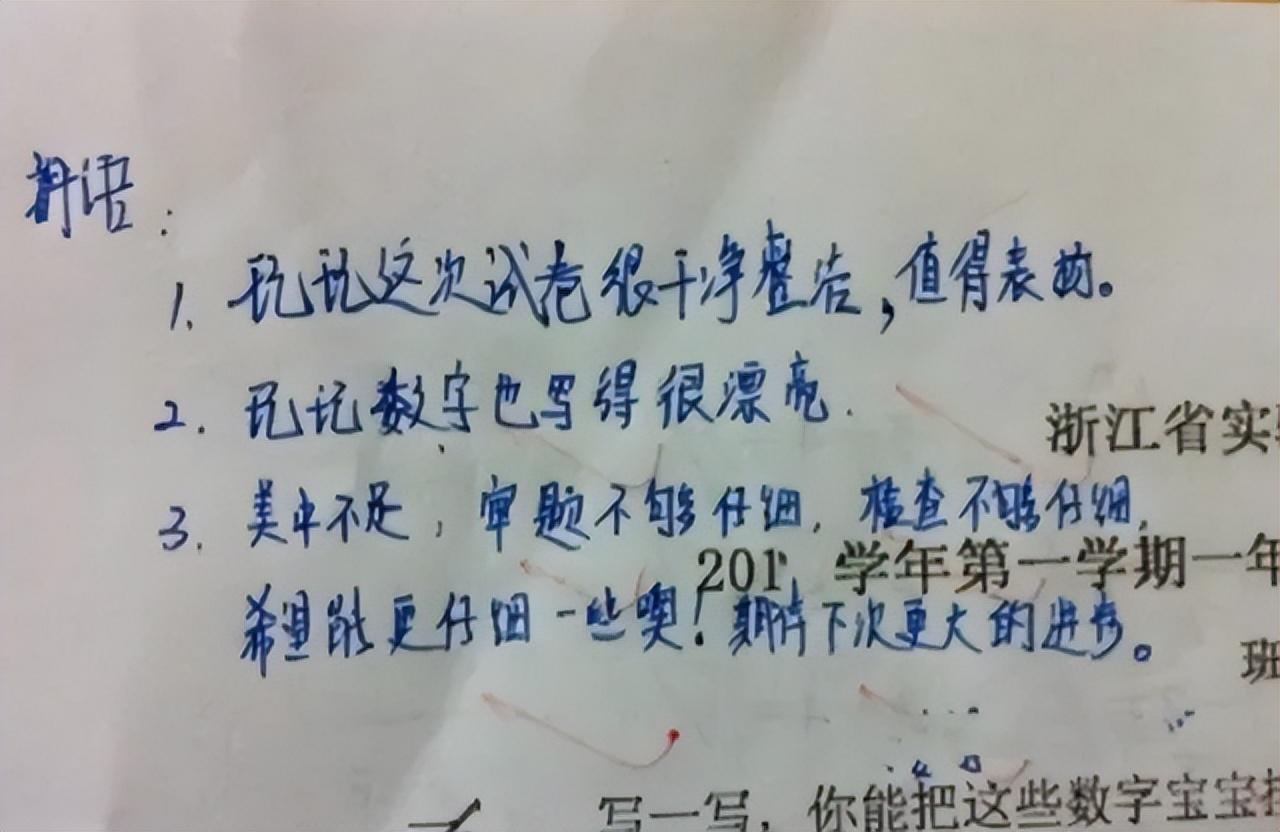 寄语：
1. 玩玩这次试卷很干净整洁，值得表扬。
2. 玩玩数字也写得很漂亮.
3. 美中不足，审题不够仔细，检查不够仔细，
希望能更仔细一些噢！期待下次更大的进步。
浙江省实
201 学年第一学期一年
班
写一写，你能把这些数字宝宝